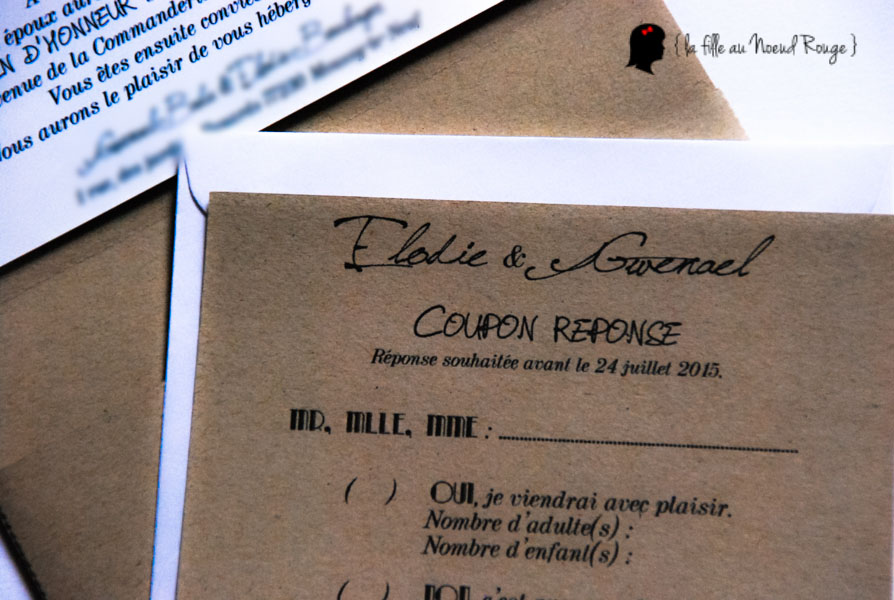 époux aur
N D'HONNEUR
enue de la Commander
Vous êtes ensuite conviés
Nous aurons le plaisir de vous héberg
{ la fille au Noeud Rouge }
Elodie & Gwenael
COUPON REPONSE
Réponse souhaitée avant le 24 juillet 2015.
MR, MLLE, MME :
( ) OUI, je viendrai avec plaisir.
Nombre d'adulte(s) :
Nombre d'enfant(s) :
( ) NON